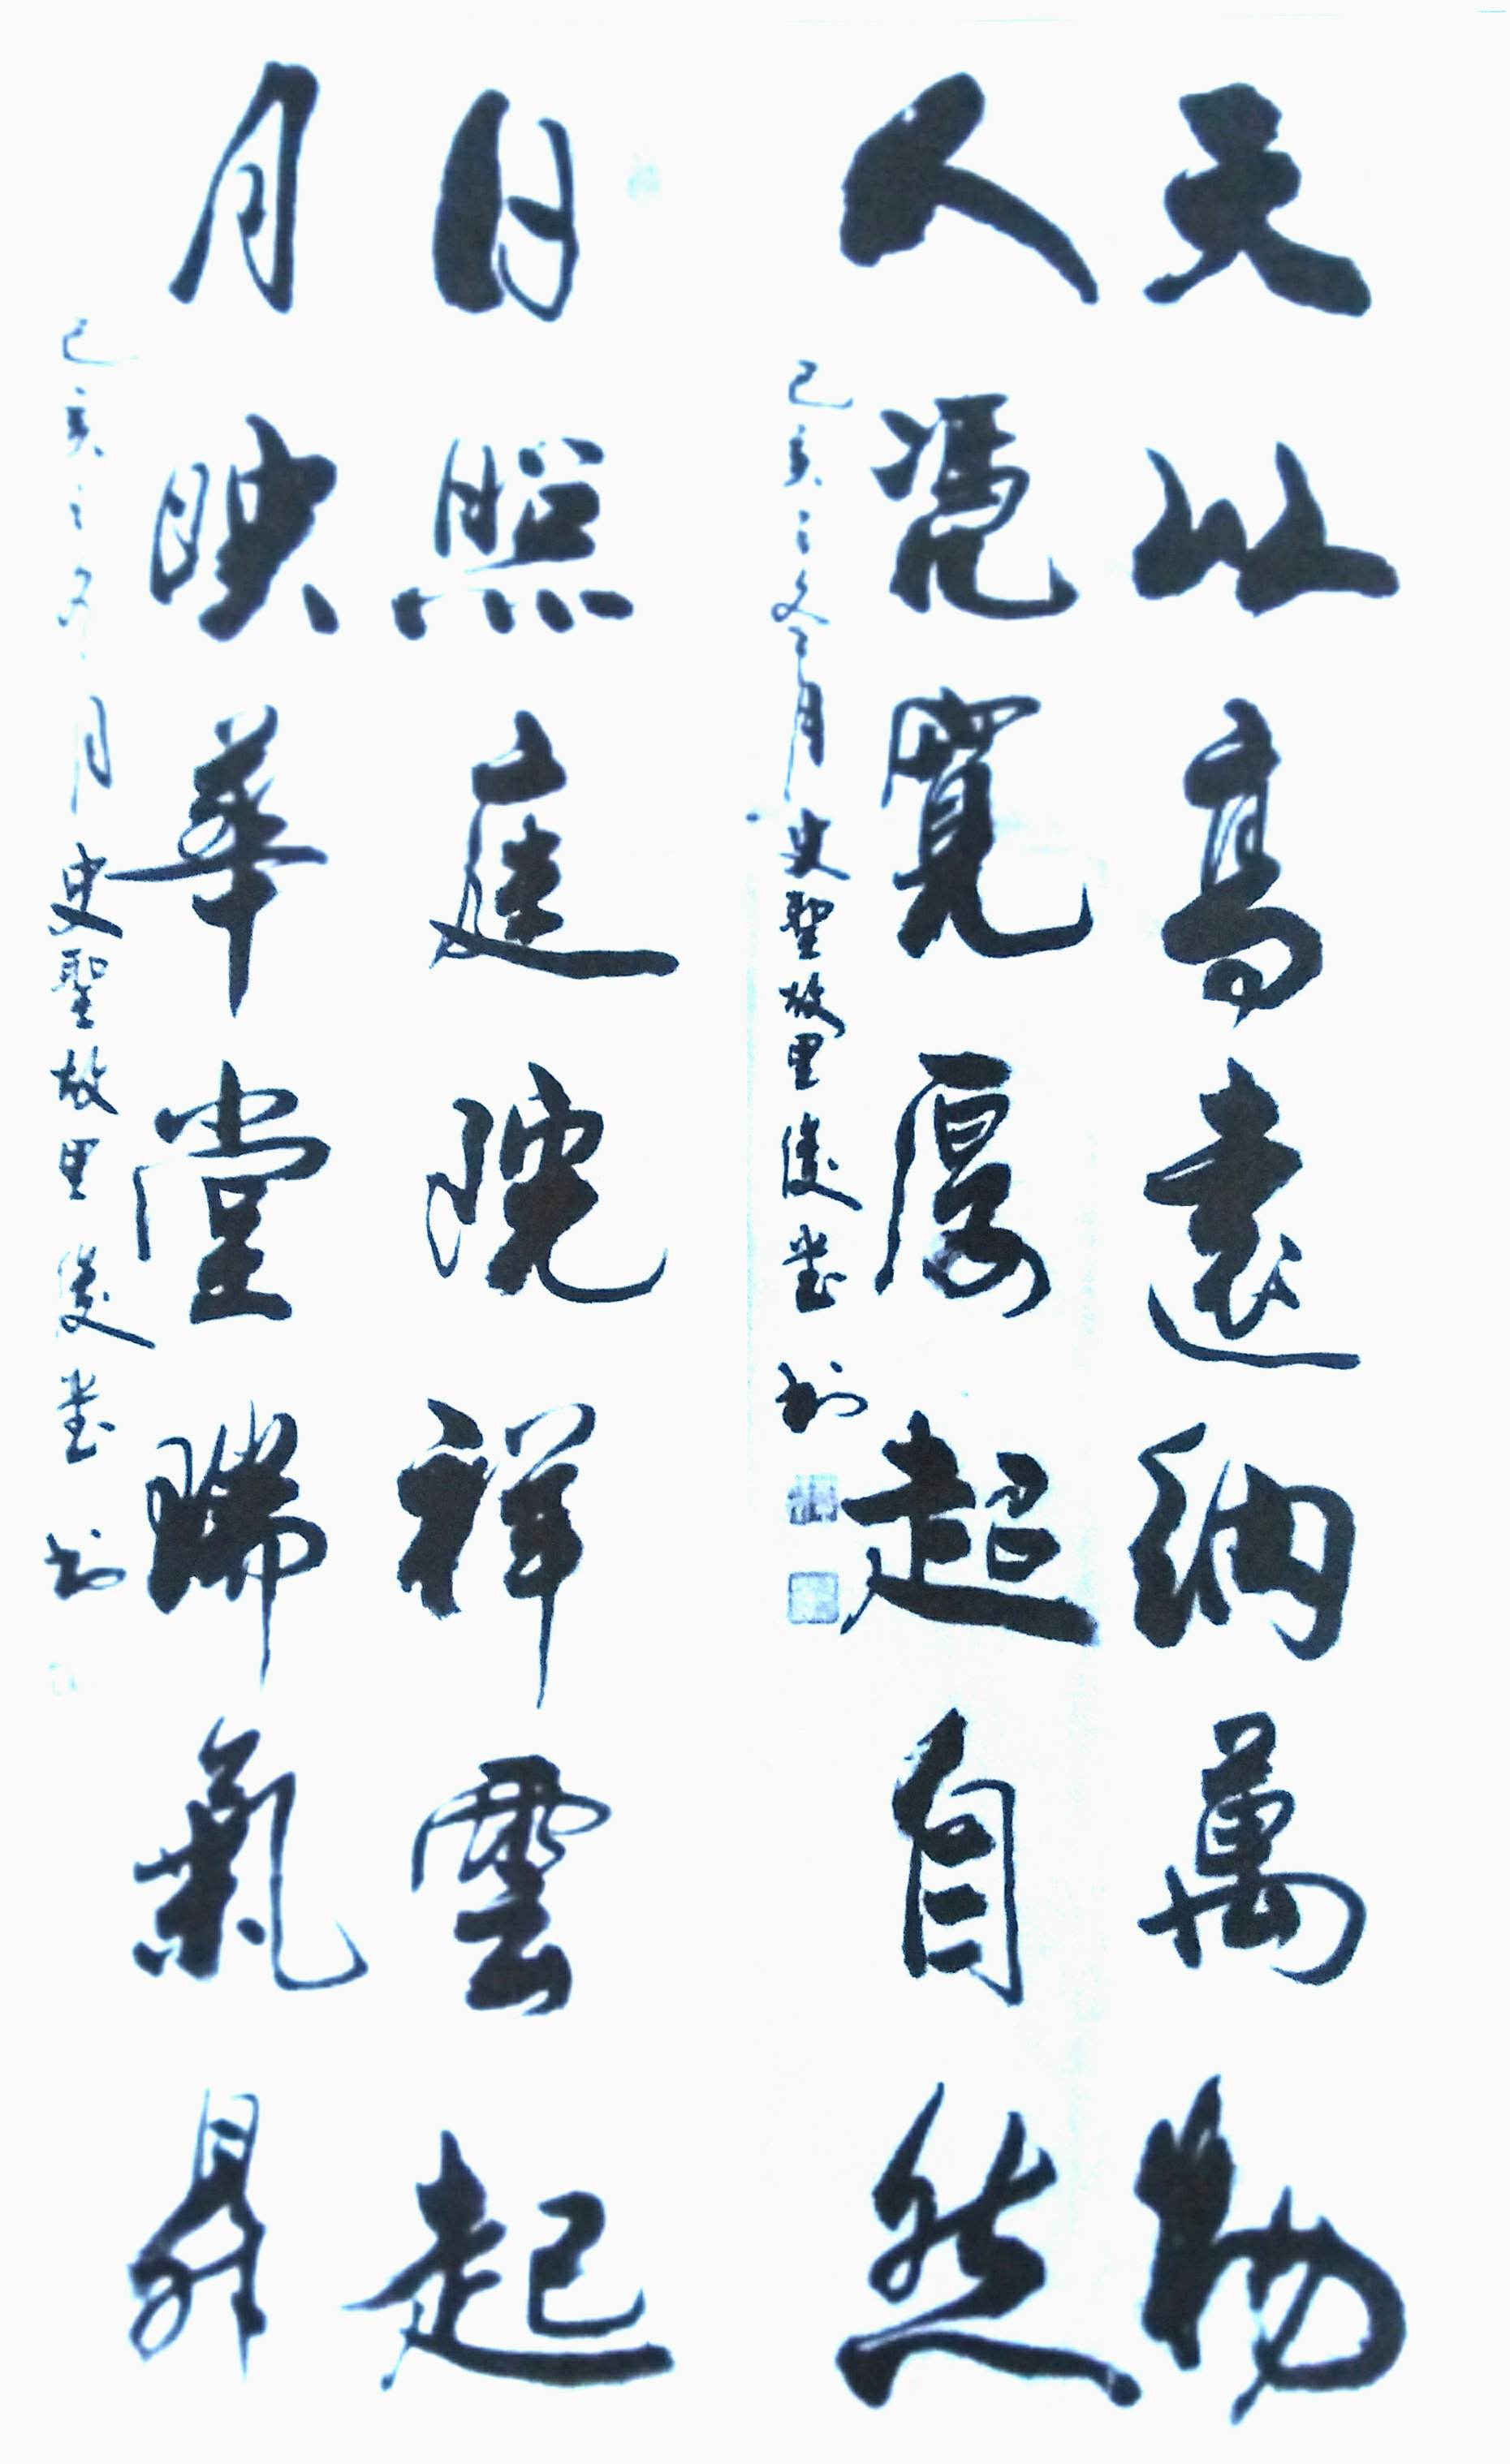 天以高遠納萬物
人憑寬厚超自然
己亥之冬月史聖故里俊堂書
日照庭院祥雲起
月映華堂瑞氣昇
己亥之冬月史聖故里俊堂書